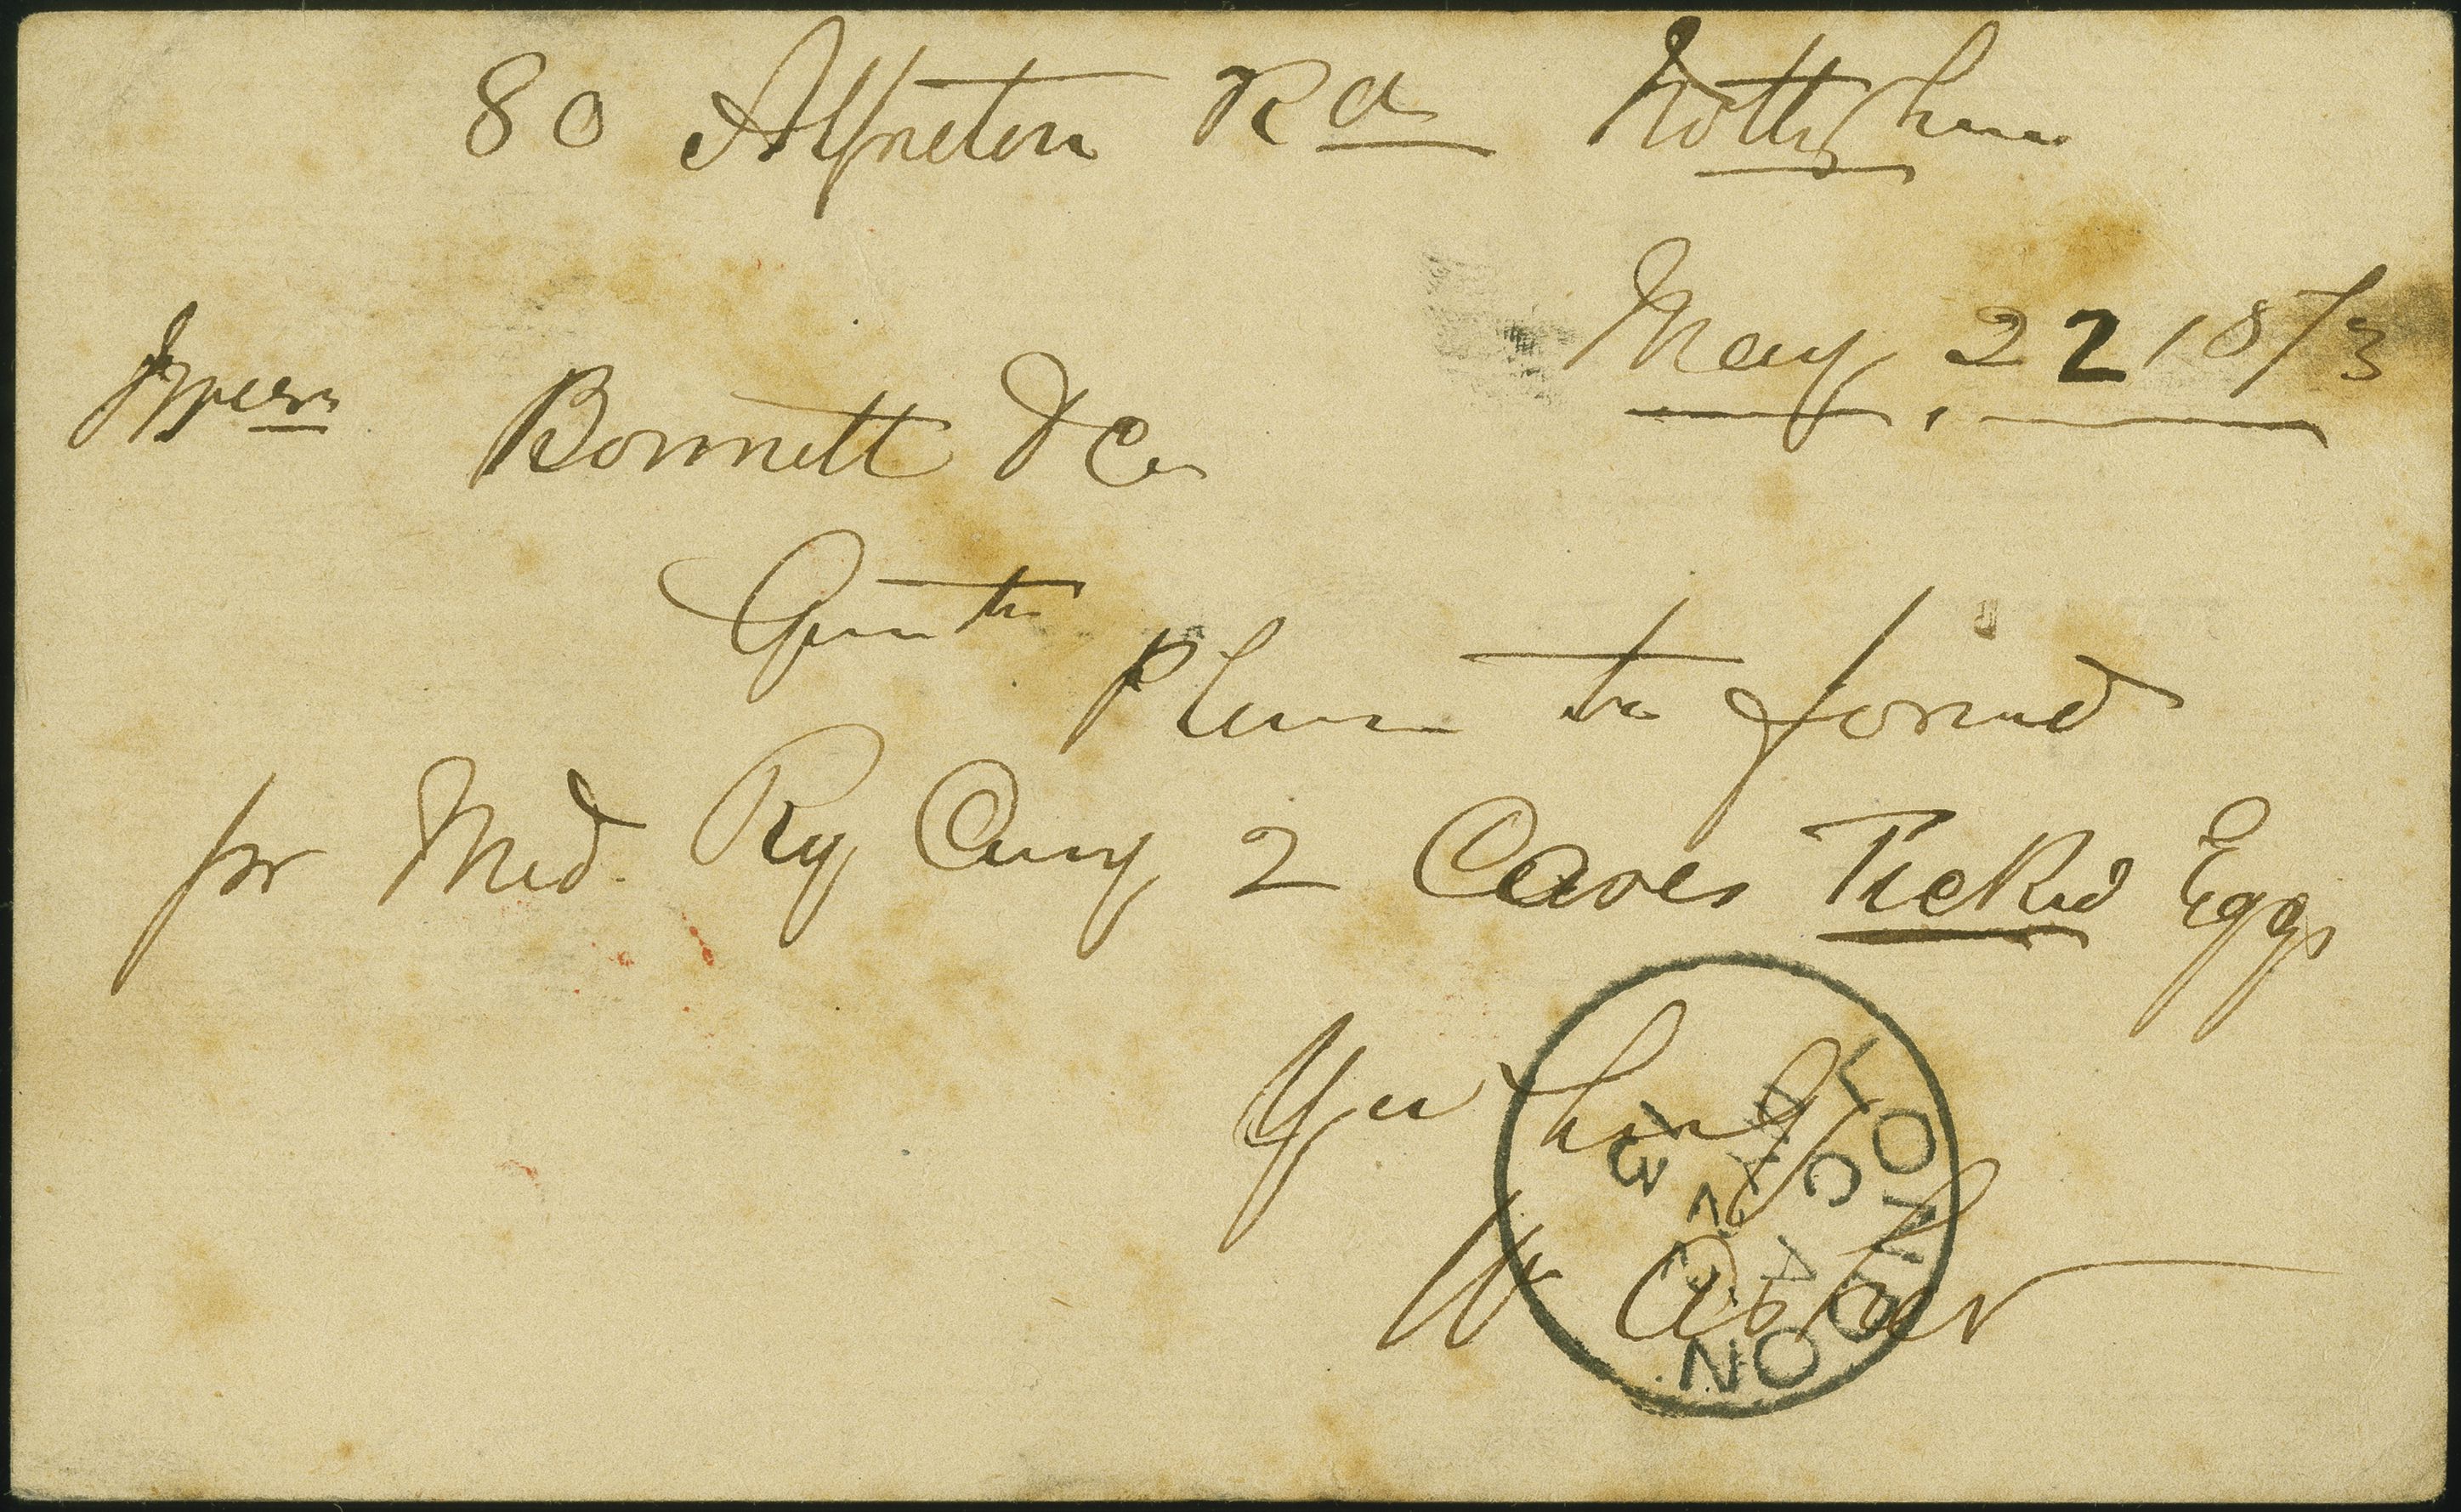 80 Alfreton Rd Nottingham
May 22 1873
Messrs Bonnett & Co
Gents
Please to forwd
per Mid. Ry Cary 2 Cases Picked Eggs
Yrs truly
W Asher
LONDON
C A
MY 2
73